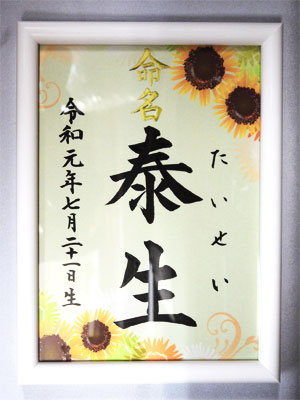 命名
たいせい
泰生
令和元年七月二十一日生